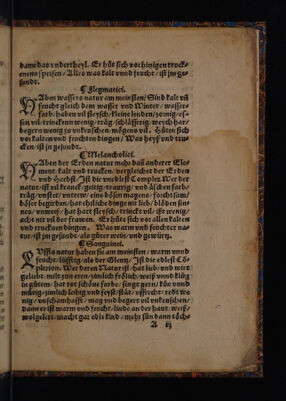 dann das vndertheyl. Er hüt sich vor hitzigen trucke
nenn speisen/ Alles was kalt vnnd feucht/ ist im ge-
sundt.
Flegmatici.
HAben wassers natur am meinsten/ Sind kalt vñ
feucht gleich dem wasser vnd Winter/ wassers
farb/ haben vil fleysch/ kleine lenden/ zornig/ es-
sen vil/ trincken wenig/ träg/ schläfferig/ weych har/
begern wenig zu vnkeuschen/ mögens vil. Hüten sich
vor kalten vnd feuchten dingen/ Was heyß vnd tru-
cken/ ist in gesundt.
Melancholici.
HAben der Erden natur mehr dañ anderer Ele-
ment/ kalt vnd trucken/ vergleichet der Erden
vnd Herbst/ Ist die vnedlest Complex. Wer der
natur/ ist vil kranck/ geitig/ traurig/ vnd äschen farb/
träg/ vnstet/ vntrew/ eins bösen magens/ forchtsam/
böser begirden/ hat ehrliche dinge nit lieb/ blöden sin-
nes/ vnweiß/ hat hart fleysch/ trinckt vil/ ißt wenig/
acht nit vil der frawen. Er hüte sich vor allen dingen
die kalt vnd trucken sind. Was warm vnd feuchter na-
tur/ ist im gesunde/ als guter wein/ vnd gewürtz.
Sanguinei.
LUffts natur haben sie am meinsten/ warm vnd
feucht/ lüfftig/ als der Glentz/ Ist die edlest Co-
plexion. Wer deren Natur ist/ hat lieb/ vnd wirt
geliebt/ milt zun eren/ zimlich frölich/ weiß vnnd kün
in gütem/ hat rot schöne farb/ singt gern/ kün vnnd
mütig/ zimlich leibig vnd feyst/ stät/ vffrecht/ redt we
nig/ vnschamhafft/ mag vnd begert vil vnkeuschen/
dann er ist warm vnd feucht/ linde an der haut/ weiß/
wolgelert/ macht gar edle kind/ mehr sün dann töch-
A iij